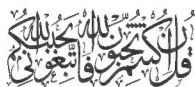 قُلْ إِنْ كُنْتُمْ تُحِبُّونَ اللَّهَ فَاتَّبِعُونِي يُحْبِبْكُمُ اللَّهُ